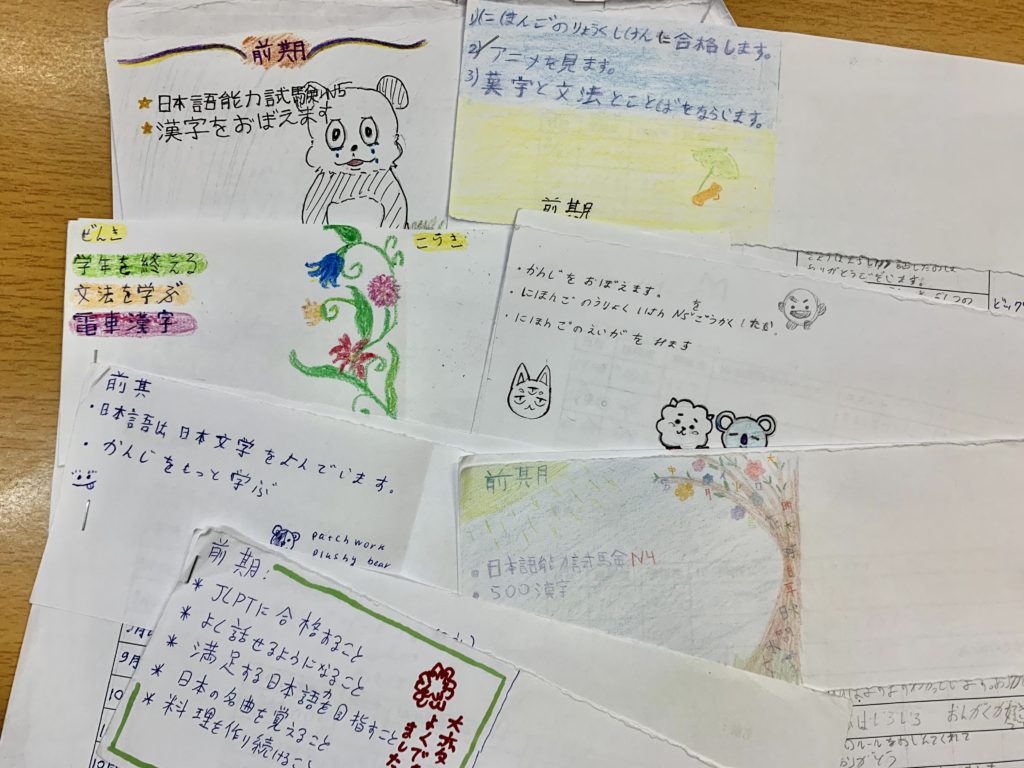 前期
日本語能力試験N5
漢字をおぼえます
1) にほんごのりょうくしけんに合格します。
2) アニメを見ます。
3) 漢字と文法とことばをならいます。
前期
ぜんき
学年を終える
文法を学ぶ
電車漢字
こうき
・かんじをおぼえます。
・にほんごのうりょくしけんN5をごうかくしたい。
・にほんごのえいがをみます
ありがとうございます。
前其
・日本語は日本文学をよんでいます。
・かんじをもっと学ぶ
patchwork
plushy bear
前期
日本語能力試験N4
500漢字
前期:
* JLPTに合格すること
* よく話せるようになること
* 満足する日本語力を目指すこと
* 日本の名曲を覚えること
* 料理を作り続けること
大変
よくでき
ました
9月
10